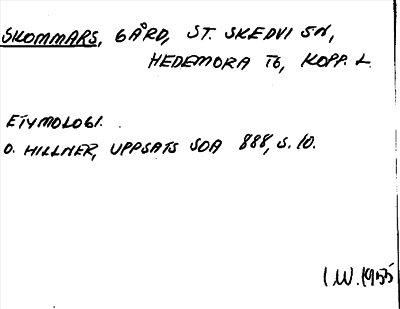 SKOMMARS, GÅRD, ST. SKEDVI SN,
HEDEMORA TG, KOPP. L.
ETYMOLOGI.
O. HILLNER, UPPSATS SOA 888, S. 10.
I.W. 1955